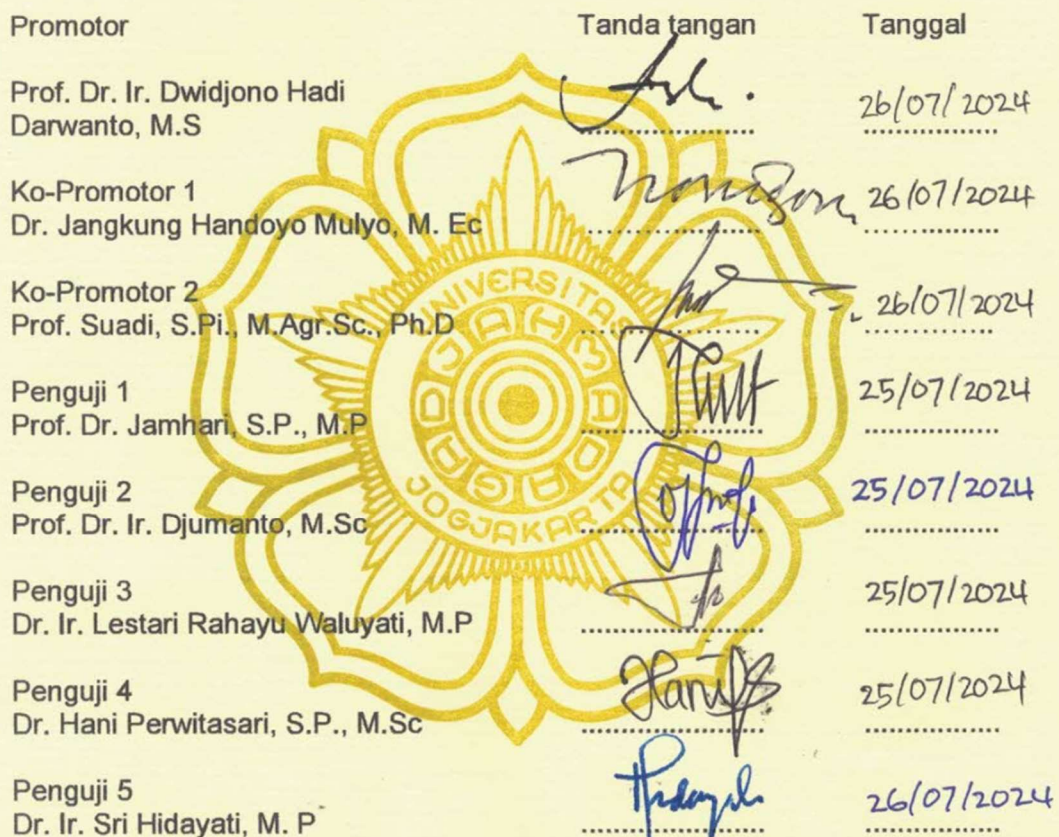 Promotor Tanda tangan Tanggal
Prof. Dr. Ir. Dwidjono Hadi
Darwanto, M.S ................. 26/07/2024
Ko-Promotor 1
Dr. Jangkung Handoyo Mulyo, M. Ec ................. 26/07/2024
Ko-Promotor 2
Prof. Suadi, S.Pi., M.Agr.Sc., Ph.D ................. 26/07/2024
Penguji 1
Prof. Dr. Jamhari, S.P., M.P ................. 25/07/2024
Penguji 2
Prof. Dr. Ir. Djumanto, M.Sc ................. 25/07/2024
Penguji 3
Dr. Ir. Lestari Rahayu Waluyati, M.P ................. 25/07/2024
Penguji 4
Dr. Hani Perwitasari, S.P., M.Sc ................. 25/07/2024
Penguji 5
Dr. Ir. Sri Hidayati, M. P ................. 26/07/2024
UNIVERSITAS
GADJAH MADA
JOGJAKARTA